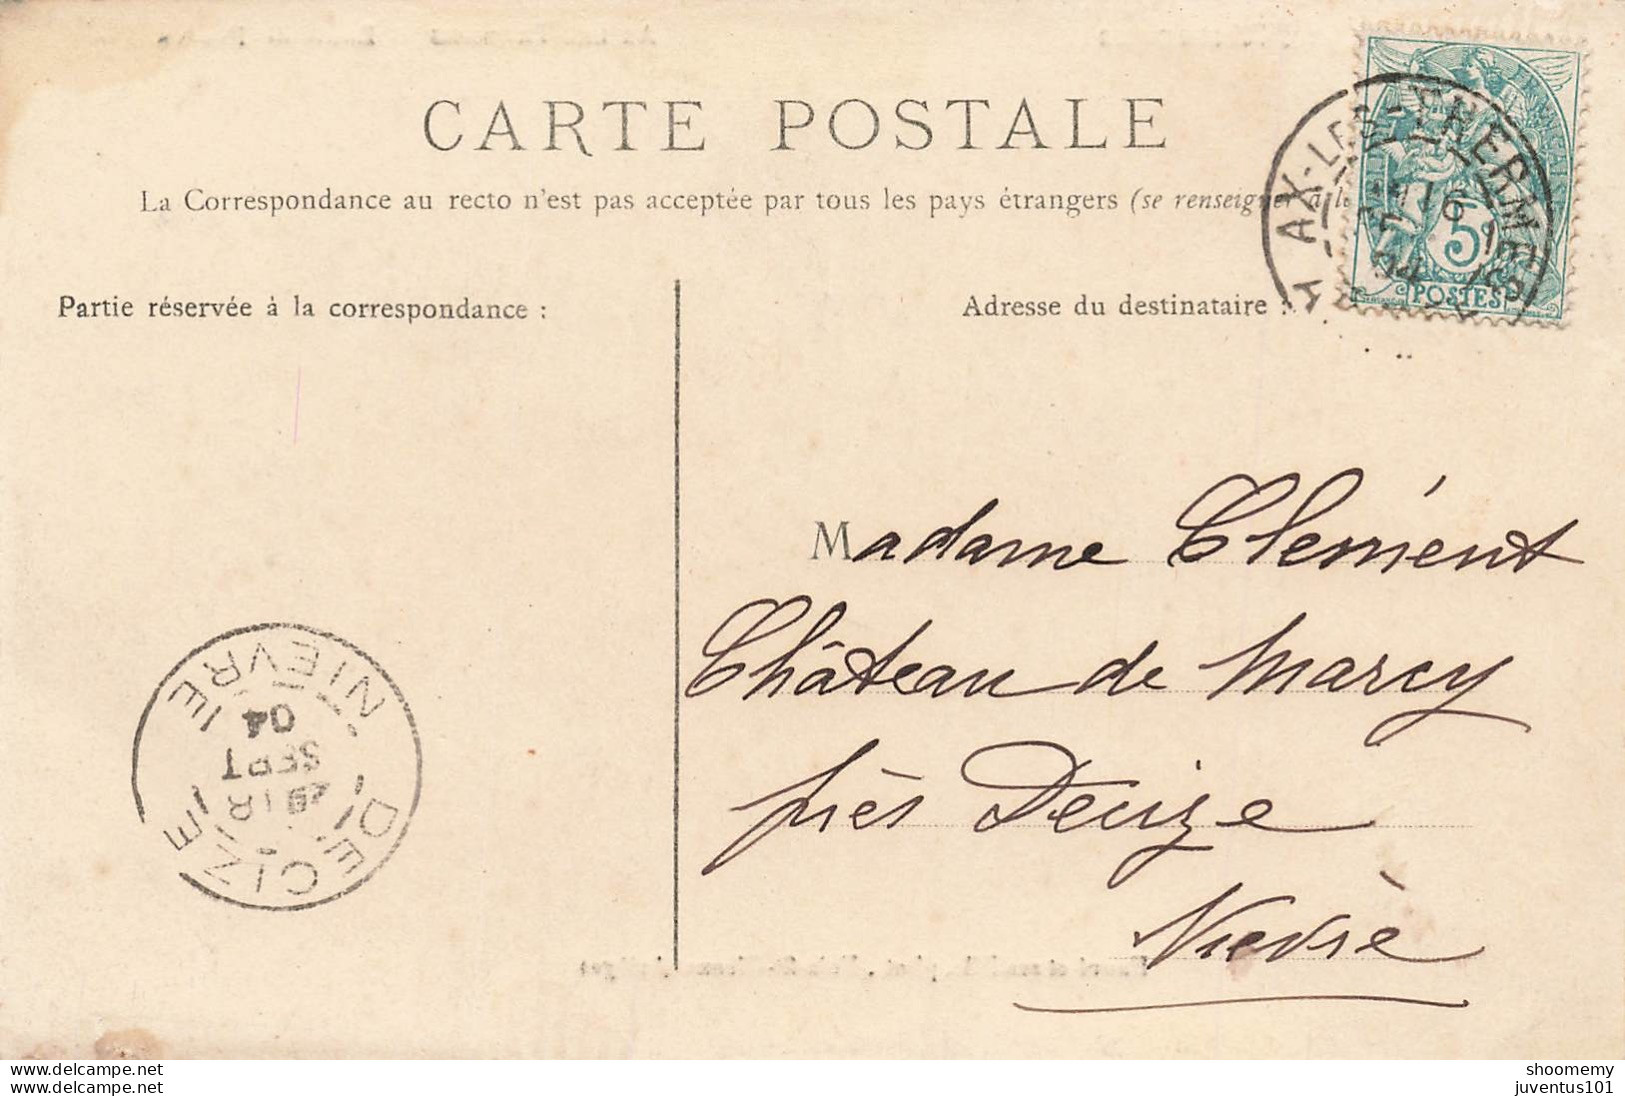 CARTE POSTALE
La Correspondance au recto n'est pas acceptée par tous les pays étrangers (se renseigner à la
Partie réservée à la correspondance :
Adresse du destinataire :
AX-LES-THERMES
FRANÇAISE
5
POSTES
Madame Clément
Château de Marcy
près Decize
Nièvre
DECIZE
NIEVRE
SEPT
04
shoomemy
juventus101